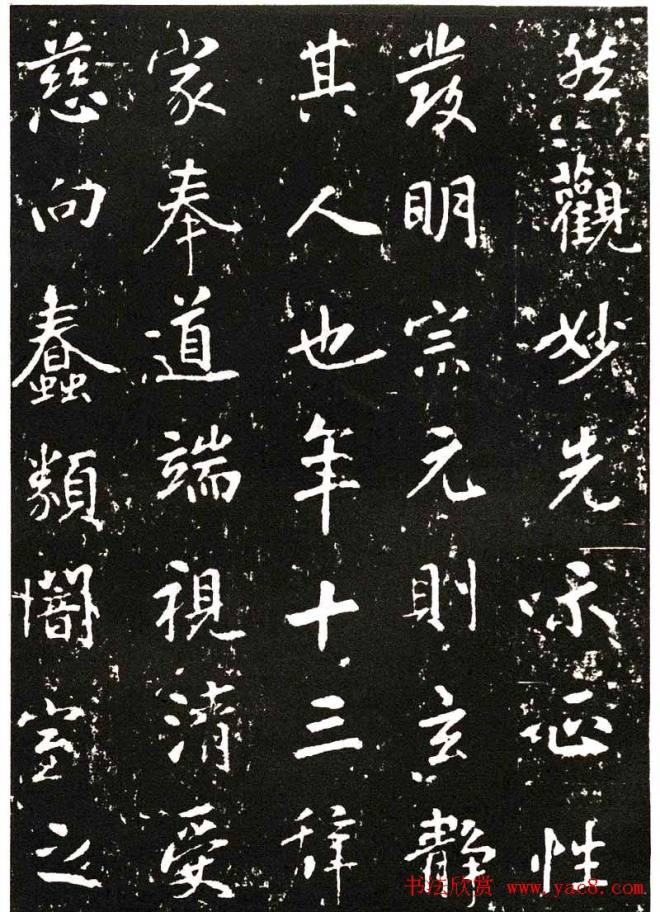 然觀妙先正性
發明宗元則玄靜
其人也年十三辭
家奉道端視清受
慈向蠢類闇室之
书法欣赏 www.yac8.com